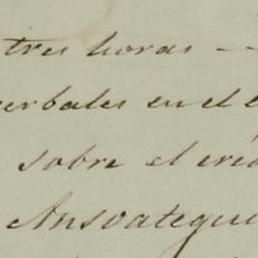 tres horas —
verbales en el
sobre el
Ansoategui